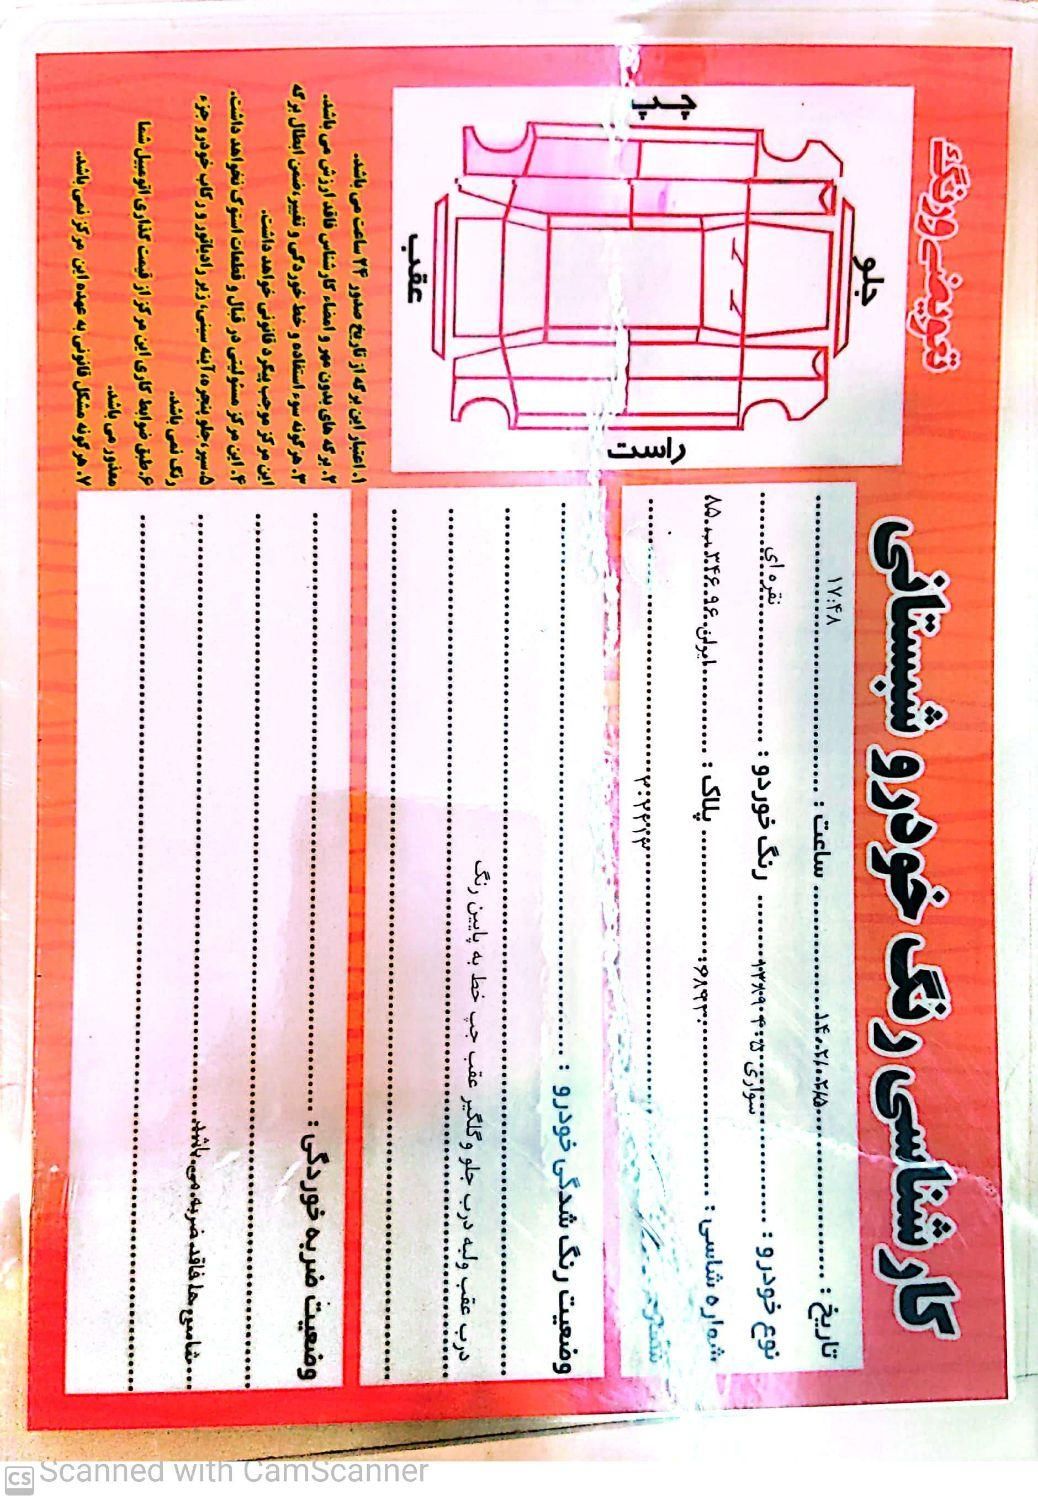 کارشناسی رنگ خودرو شبستانی
تعویض و رنگ
تاریخ : ۱۴۰۲/۰۲/۵ ساعت : ۱۷:۴۸
نوع خودرو : سواری رنگ خوردو : نقره ای
شماره شاسی : ۶۸۳۳۰ پلاک : ایران ۹۶ ۳۴۶ب ۸۵
۲۰۲۲۱۳
جلو
چپ
راست
عقب
وضعیت رنگ شدگی خودرو :
درب عقب ولبه درب جلو و گلگیر عقب چپ خط به پایین رنگ
وضعیت ضربه خوردگی :
شاسی ها فاقد ضربه می باشد
۱. اعتبار این برگه از تاریخ صدور ۲۴ ساعت می باشد.
۲. برگه های بدون مهر و امضاء کارشناس فاقد ارزش می باشد.
۳. هرگونه سوء استفاده و خط خوردگی و تغییر ضمن ابطال برگه
این مرکز موجب پیگرد قانونی خواهد داشت.
۴. این مرکز مسئولیتی در قبال و قطعات استوک نخواهد داشت.
۵. سپر، جلو پنجره، آینه سینی، زیر رادیاتور و رکاب خودرو جزء
رنگ نمی باشد.
۶. طبق ضوابط کاری این مرکز از قیمت گذاری اتومبیل شما
معذور می باشد.
۷. هرگونه مشکل قانونی به عهده این مرکز نمی باشد.
CS Scanned with CamScanner